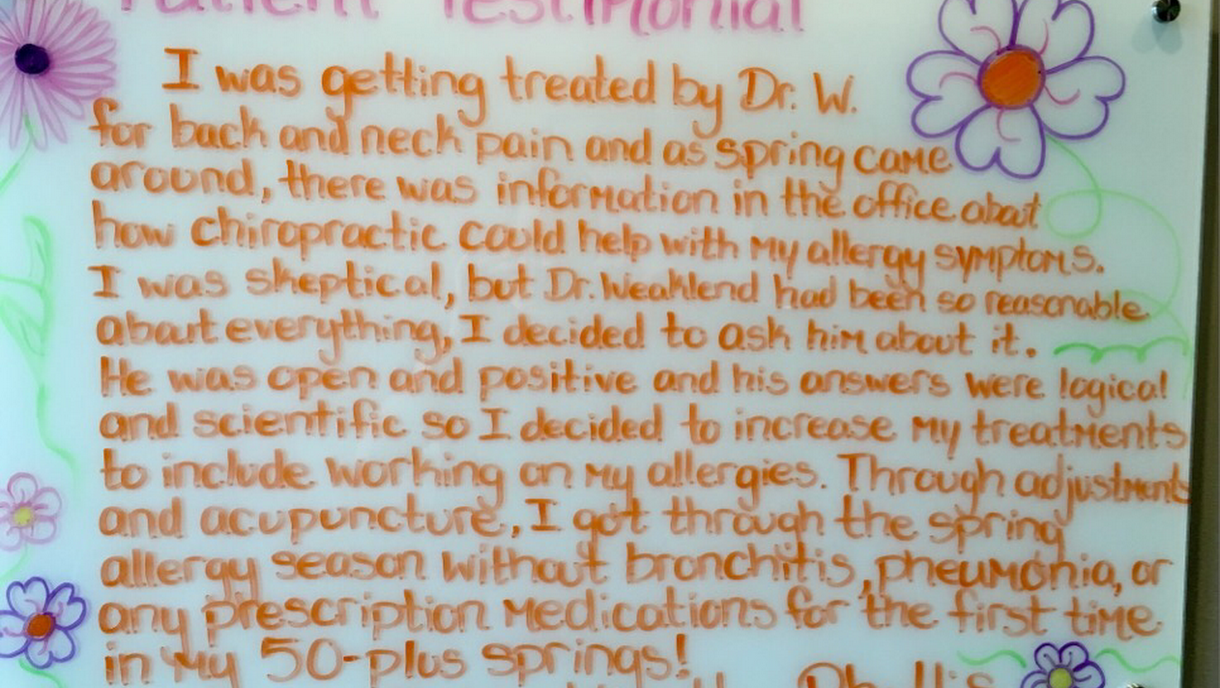 Patient Testimonial
I was getting treated by Dr. W.
for back and neck pain and as spring came
around, there was information in the office about
how chiropractic could help with my allergy symptoms.
I was skeptical, but Dr. Weaklend had been so reasonable
about everything, I decided to ask him about it.
He was open and positive and his answers were logical
and scientific so I decided to increase my treatments
to include working on my allergies. Through adjustments
and acupuncture, I got through the spring
allergy season without bronchitis, pheumonia, or
any prescription medications for the first time
in my 50-plus springs!
Phyllis